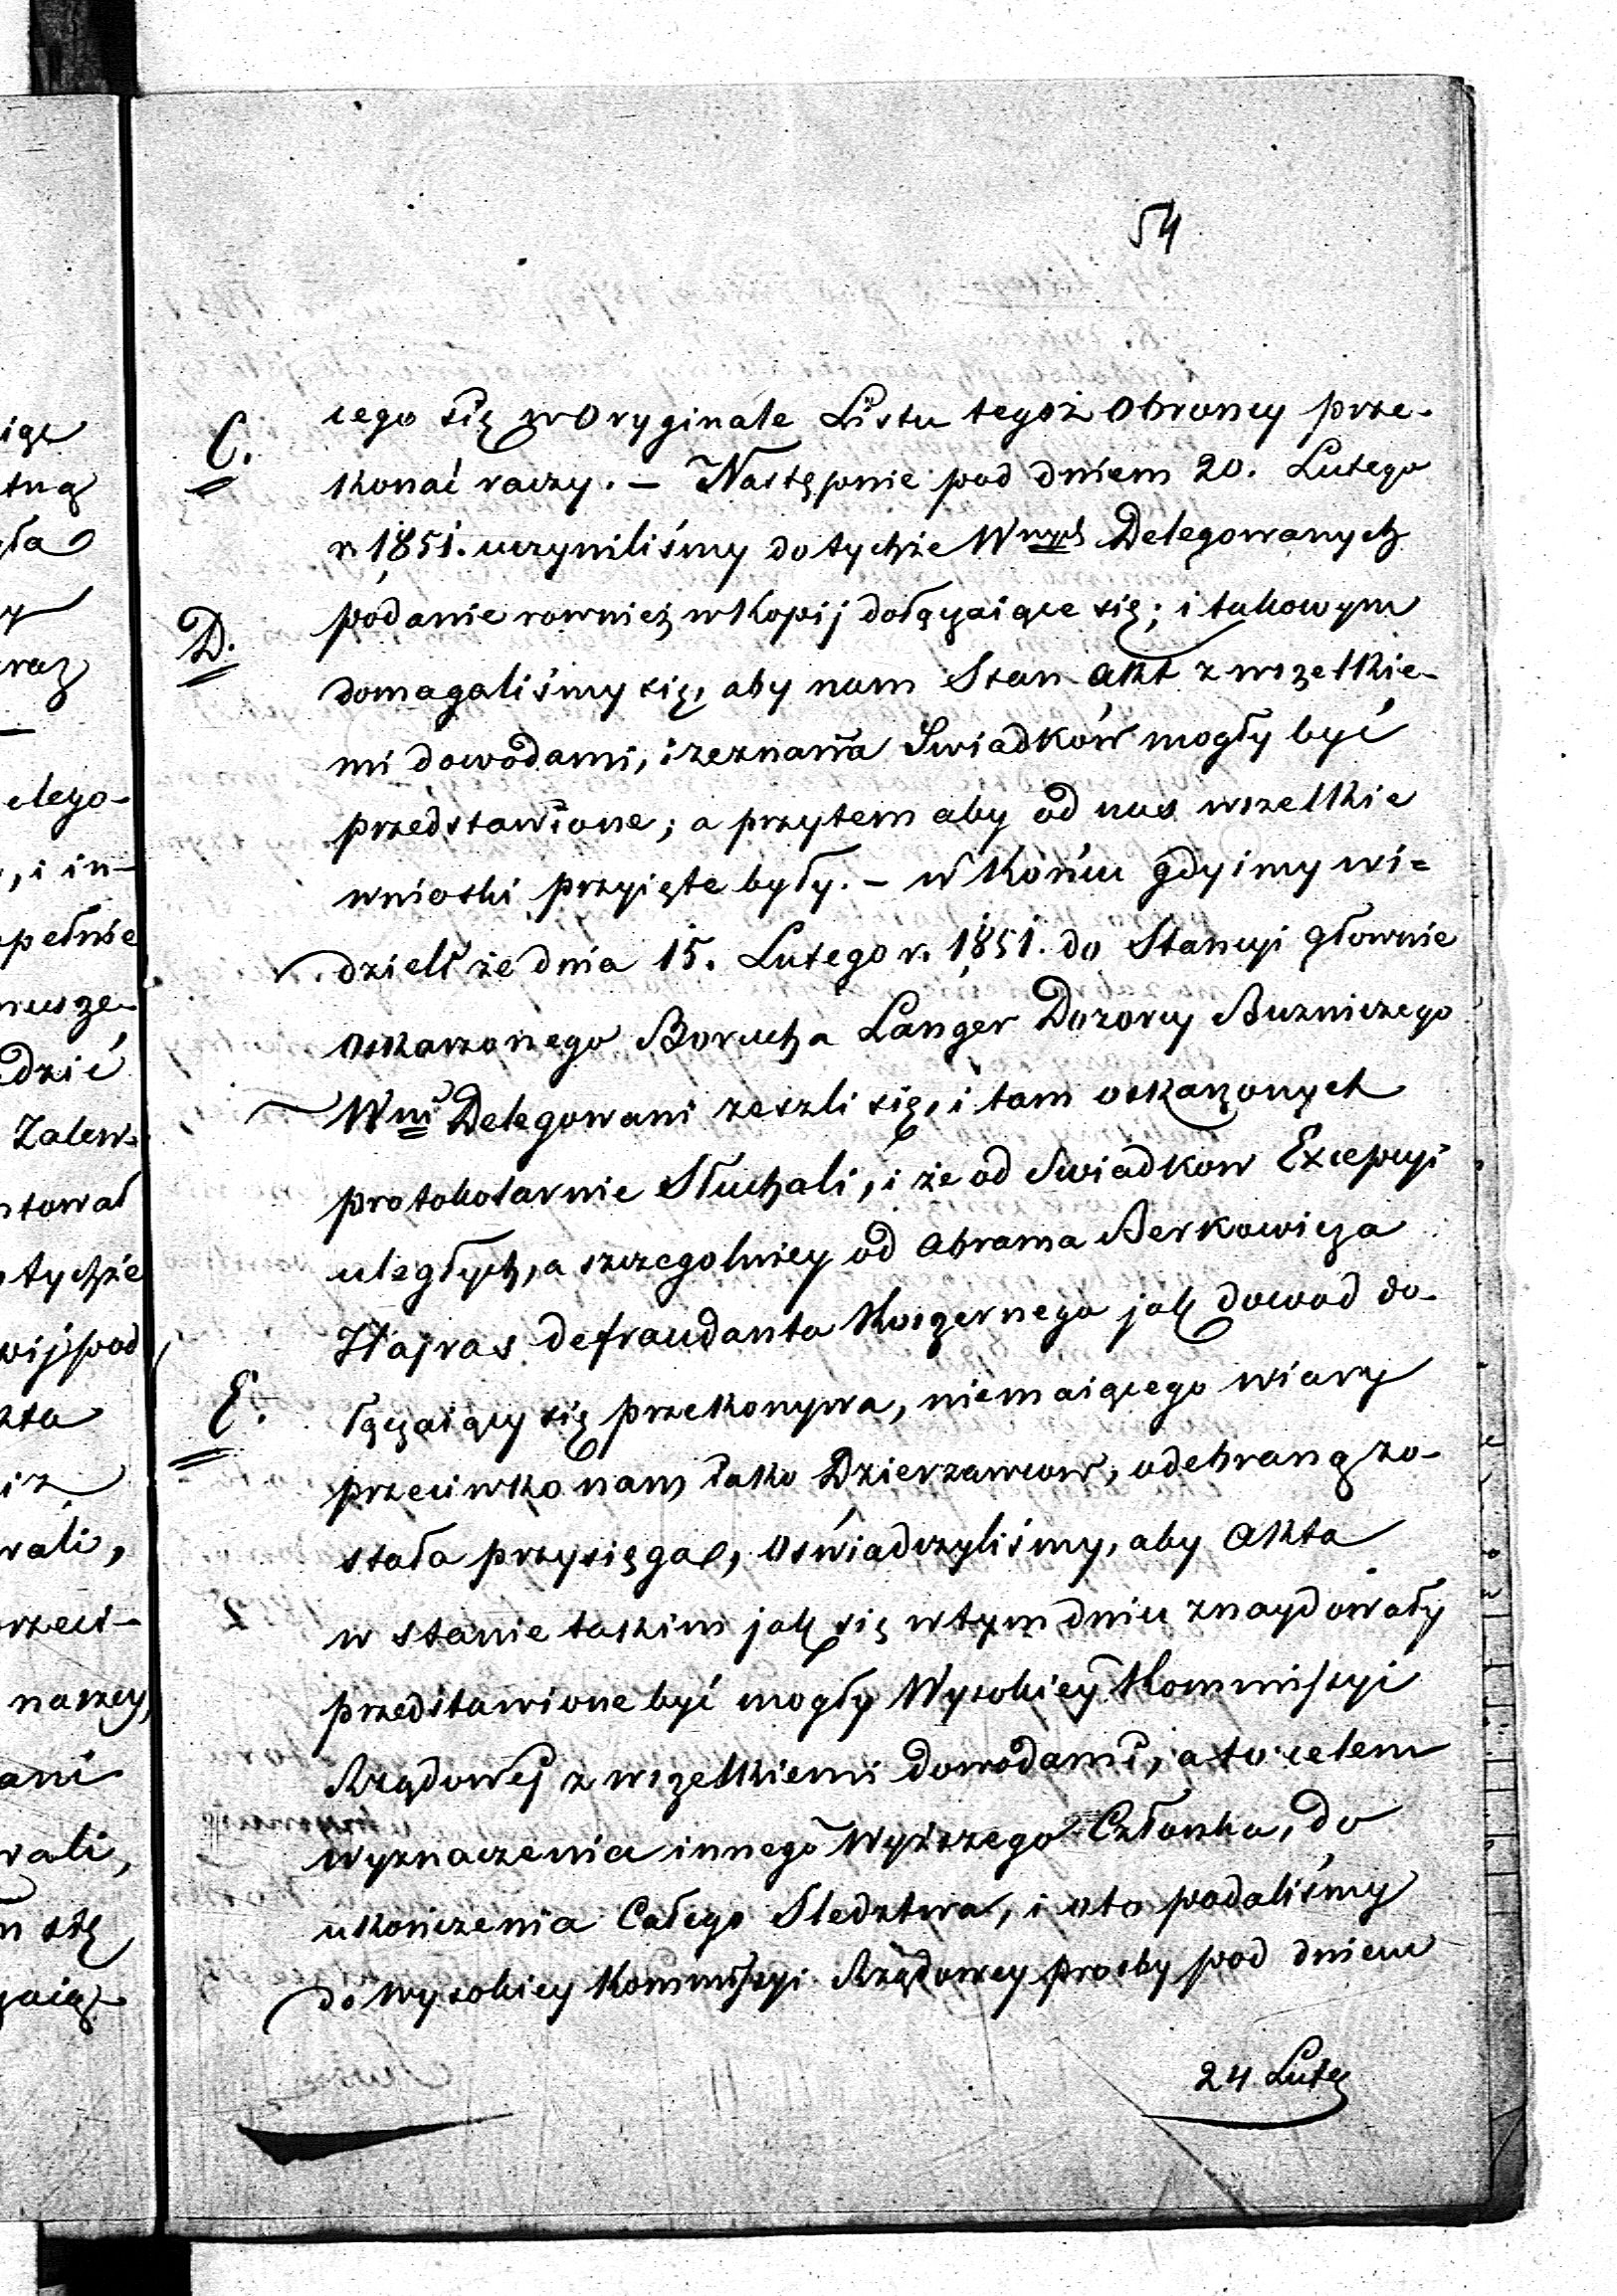 54
cego się w Oryginale Listu tegoż Obroncy prze-
C. konać raczy. – Następnie pod dniem 20. Lutego
r. 1851. uczyniliśmy do tychże Wnych Delegowanych
D. podanie rownież w Kopij dołączaiące się; i takowym
domagaliśmy się, aby nam Stan Akt z wszelkie-
mi dowodami, i zeznania Swiadków mogły być
przedstawione; a przytem aby od nas wszelkie
wnioski przyięte były. – w Końcu gdyimy wi=
dzieli że dnia 15. Lutego r. 1851. do Stancyi głownie
oskarzonego Borucha Langer Dozorcy Buzniczego
Wni Delegowani zeszli się, i tam oskarzonych
protokolarnie Słuchali, i że od Swiadkow Excepcyi
uległych, a szczegolniey od Abrama Berkowicza
Hajras defraudanta Koszernego jak dowod do-
E. łączaiący się przekonywa, niemaiącego wiary
przeciwko nam iako Dzierzawcow, odebraną zo-
stała przysięga, Oświadczyliśmy, aby Akta
w stanie takim jak się w tym dniu znaydowały
przedstawione być mogły Wysokiey Kommissyi
Rządowej z wszelkiemi dowodami, a to celem
wyznaczenia innego Wyższego Członka, do
ukończenia Całego Sledztwa, i oto podaliśmy
do Wysokiey Kommissyi Rządowey prosby pod dniem
24 Lute
ią
tną
ła
y
raz
elego-
, i in-
pełnie
rusze-
dzić
Zalew-
towal
tychże
wij pod
kta
iż
rali,
rzeci-
naszey,
ani
rali,
m się
aią